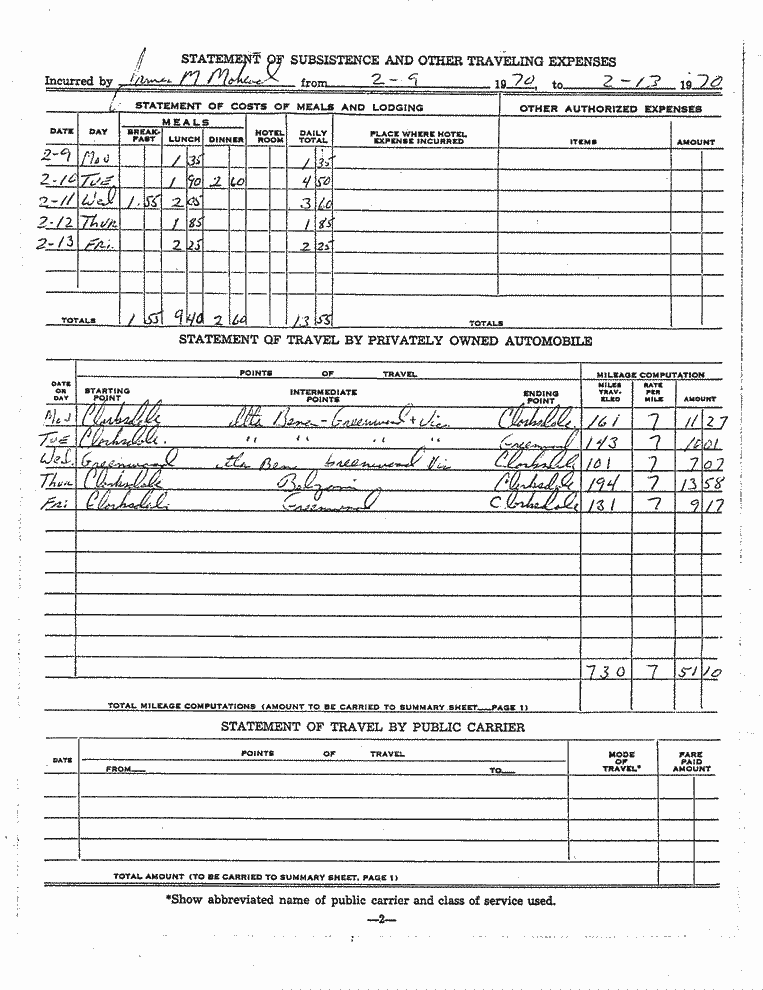 STATEMENT OF SUBSISTENCE AND OTHER TRAVELING EXPENSES
Incurred by M from 2-9 1970, to 2-13 1970
STATEMENT OF COSTS OF MEALS AND LODGING OTHER AUTHORIZED EXPENSES
MEALS
DATE DAY BREAK-FAST LUNCH DINNER HOTEL ROOM DAILY TOTAL PLACE WHERE HOTEL EXPENSE INCURRED ITEMS AMOUNT
2-9 1 35 1 35
2-10 TUE 1 90 2 60 4 50
2-11 Wed 1 55 2 05 3 60
2-12 Thur 1 85 1 85
2-13 Fri. 2 25 2 25
TOTALS 1 55 9 40 2 60 13 55 TOTALS
STATEMENT OF TRAVEL BY PRIVATELY OWNED AUTOMOBILE
POINTS OF TRAVEL MILEAGE COMPUTATION
DATE OR DAY STARTING POINT INTERMEDIATE POINTS ENDING POINT MILES TRAV-ELED RATE PER MILE AMOUNT
Clarksdale Itta Bena - Greenwood + Vic. Clarksdale 161 7 11 27
TUE Clarksdale. " " " " Greenwood 143 7 10 01
Wed. Greenwood Itta Bena Greenwood Vic Clarksdale 101 7 7 07
Thur Clarksdale Belzoni Clarksdale 194 7 13 58
Fri Clarksdale Greenwood Clarksdale 131 7 9 17
730 7 51 10
TOTAL MILEAGE COMPUTATIONS (AMOUNT TO BE CARRIED TO SUMMARY SHEET—PAGE 1)
STATEMENT OF TRAVEL BY PUBLIC CARRIER
DATE POINTS OF TRAVEL MODE OF TRAVEL* FARE PAID AMOUNT
FROM— TO—
TOTAL AMOUNT (TO BE CARRIED TO SUMMARY SHEET, PAGE 1)
*Show abbreviated name of public carrier and class of service used.
—2—